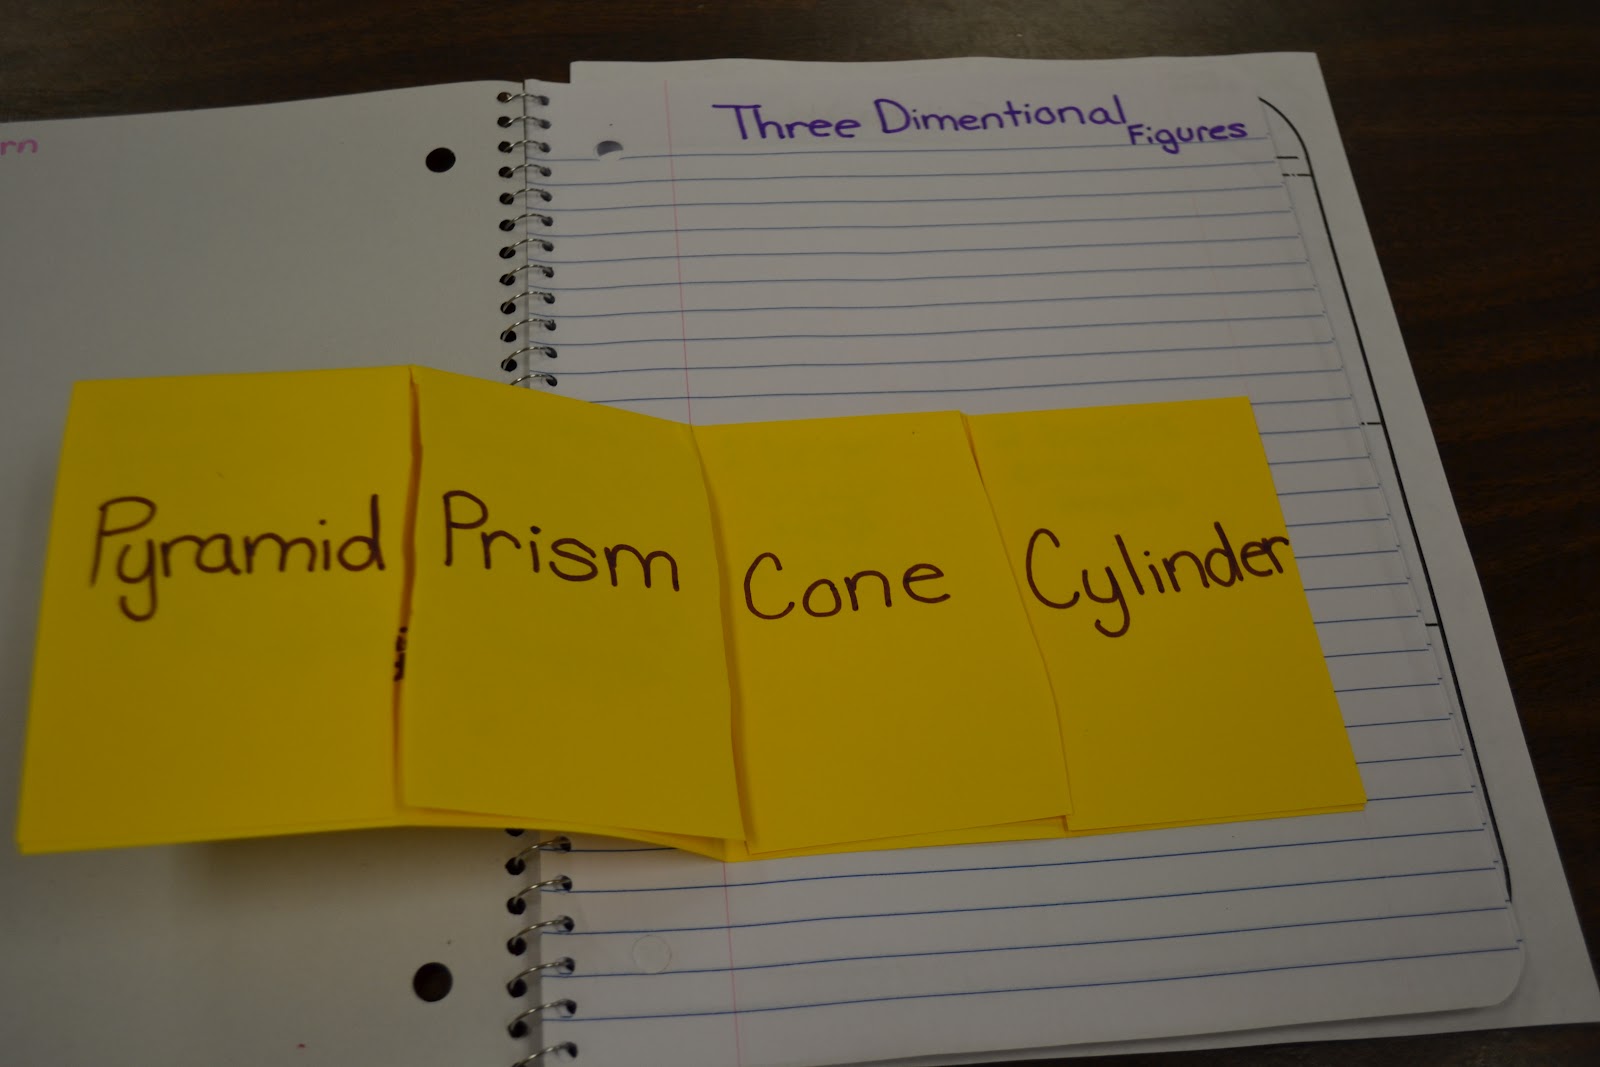 rn
Three Dimentional
Figures
Pyramid
Prism
Cone
Cylinder